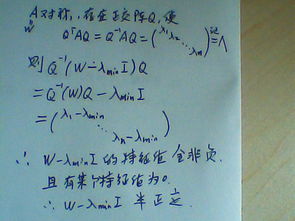 A对称,存在正交阵Q,使
W
QᵀAQ = Q⁻¹AQ = (λ₁ λ₂ ⋱ λₙ) 记= Λ
则 Q⁻¹(W-λminI)Q
= Q⁻¹(W)Q - λminI
= (λ₁-λmin ⋱ λn-λmin)
∴ W-λminI 的特征值全非负
且有某个特征值为0.
∴ W-λminI 半正定.